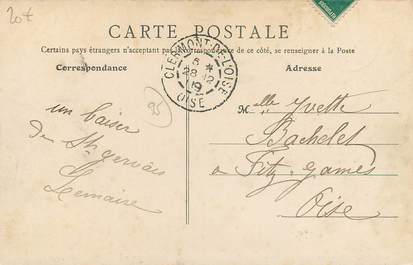 20f
CARTE POSTALE
Certains pays étrangers n'acceptant pas la correspondance de ce côté, se renseigner à la Poste
Correspondance
Adresse
CLERMONT-DE-L'OISE
5 *
28 12
19
OISE
25
un baiser
de St gervais
Lemaire
Melle Yvette
Bachelet
a Fitz-games
Oise